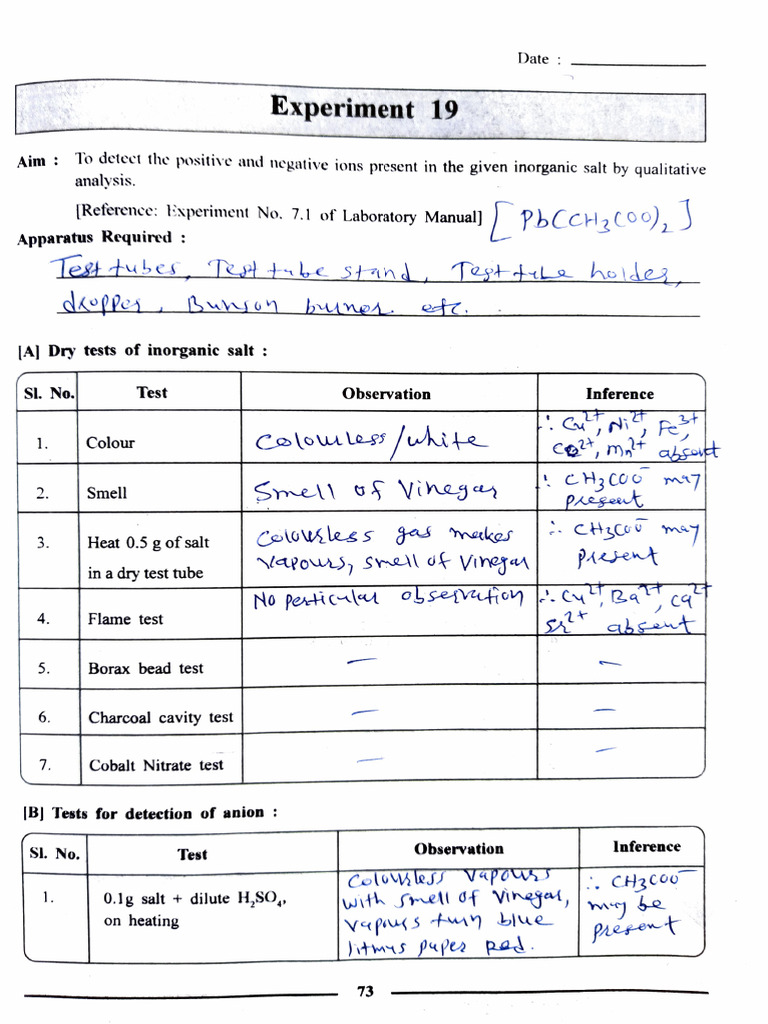 Date : ___________
Experiment 19
Aim : To detect the positive and negative ions present in the given inorganic salt by qualitative
analysis.
[Reference: Experiment No. 7.1 of Laboratory Manual] [Pb(CH3COO)2]
Apparatus Required :
Test tubes, Test tube stand, Test tube holder,
dropper, Bunson burner etc.
[A] Dry tests of inorganic salt :
Sl. No. Test Observation Inference
1. Colour Colourless/white ∴ Cu2+, Ni2+, Fe3+,
Co2+, Mn2+ absent
2. Smell Smell of Vinegar ∴ CH3COO- may
present
3. Heat 0.5 g of salt Colourless gas makes ∴ CH3COO- may
in a dry test tube vapours, smell of vinegar present
4. Flame test No perticular observation ∴ Cu2+, Ba2+, Ca2+
Sr2+ absent
5. Borax bead test — —
6. Charcoal cavity test — —
7. Cobalt Nitrate test — —
[B] Tests for detection of anion :
Sl. No. Test Observation Inference
1. 0.1g salt + dilute H2SO4, Colourless vapours ∴ CH3COO-
on heating with smell of vinegar, may be
vapours turn blue present
litmus paper red.
73